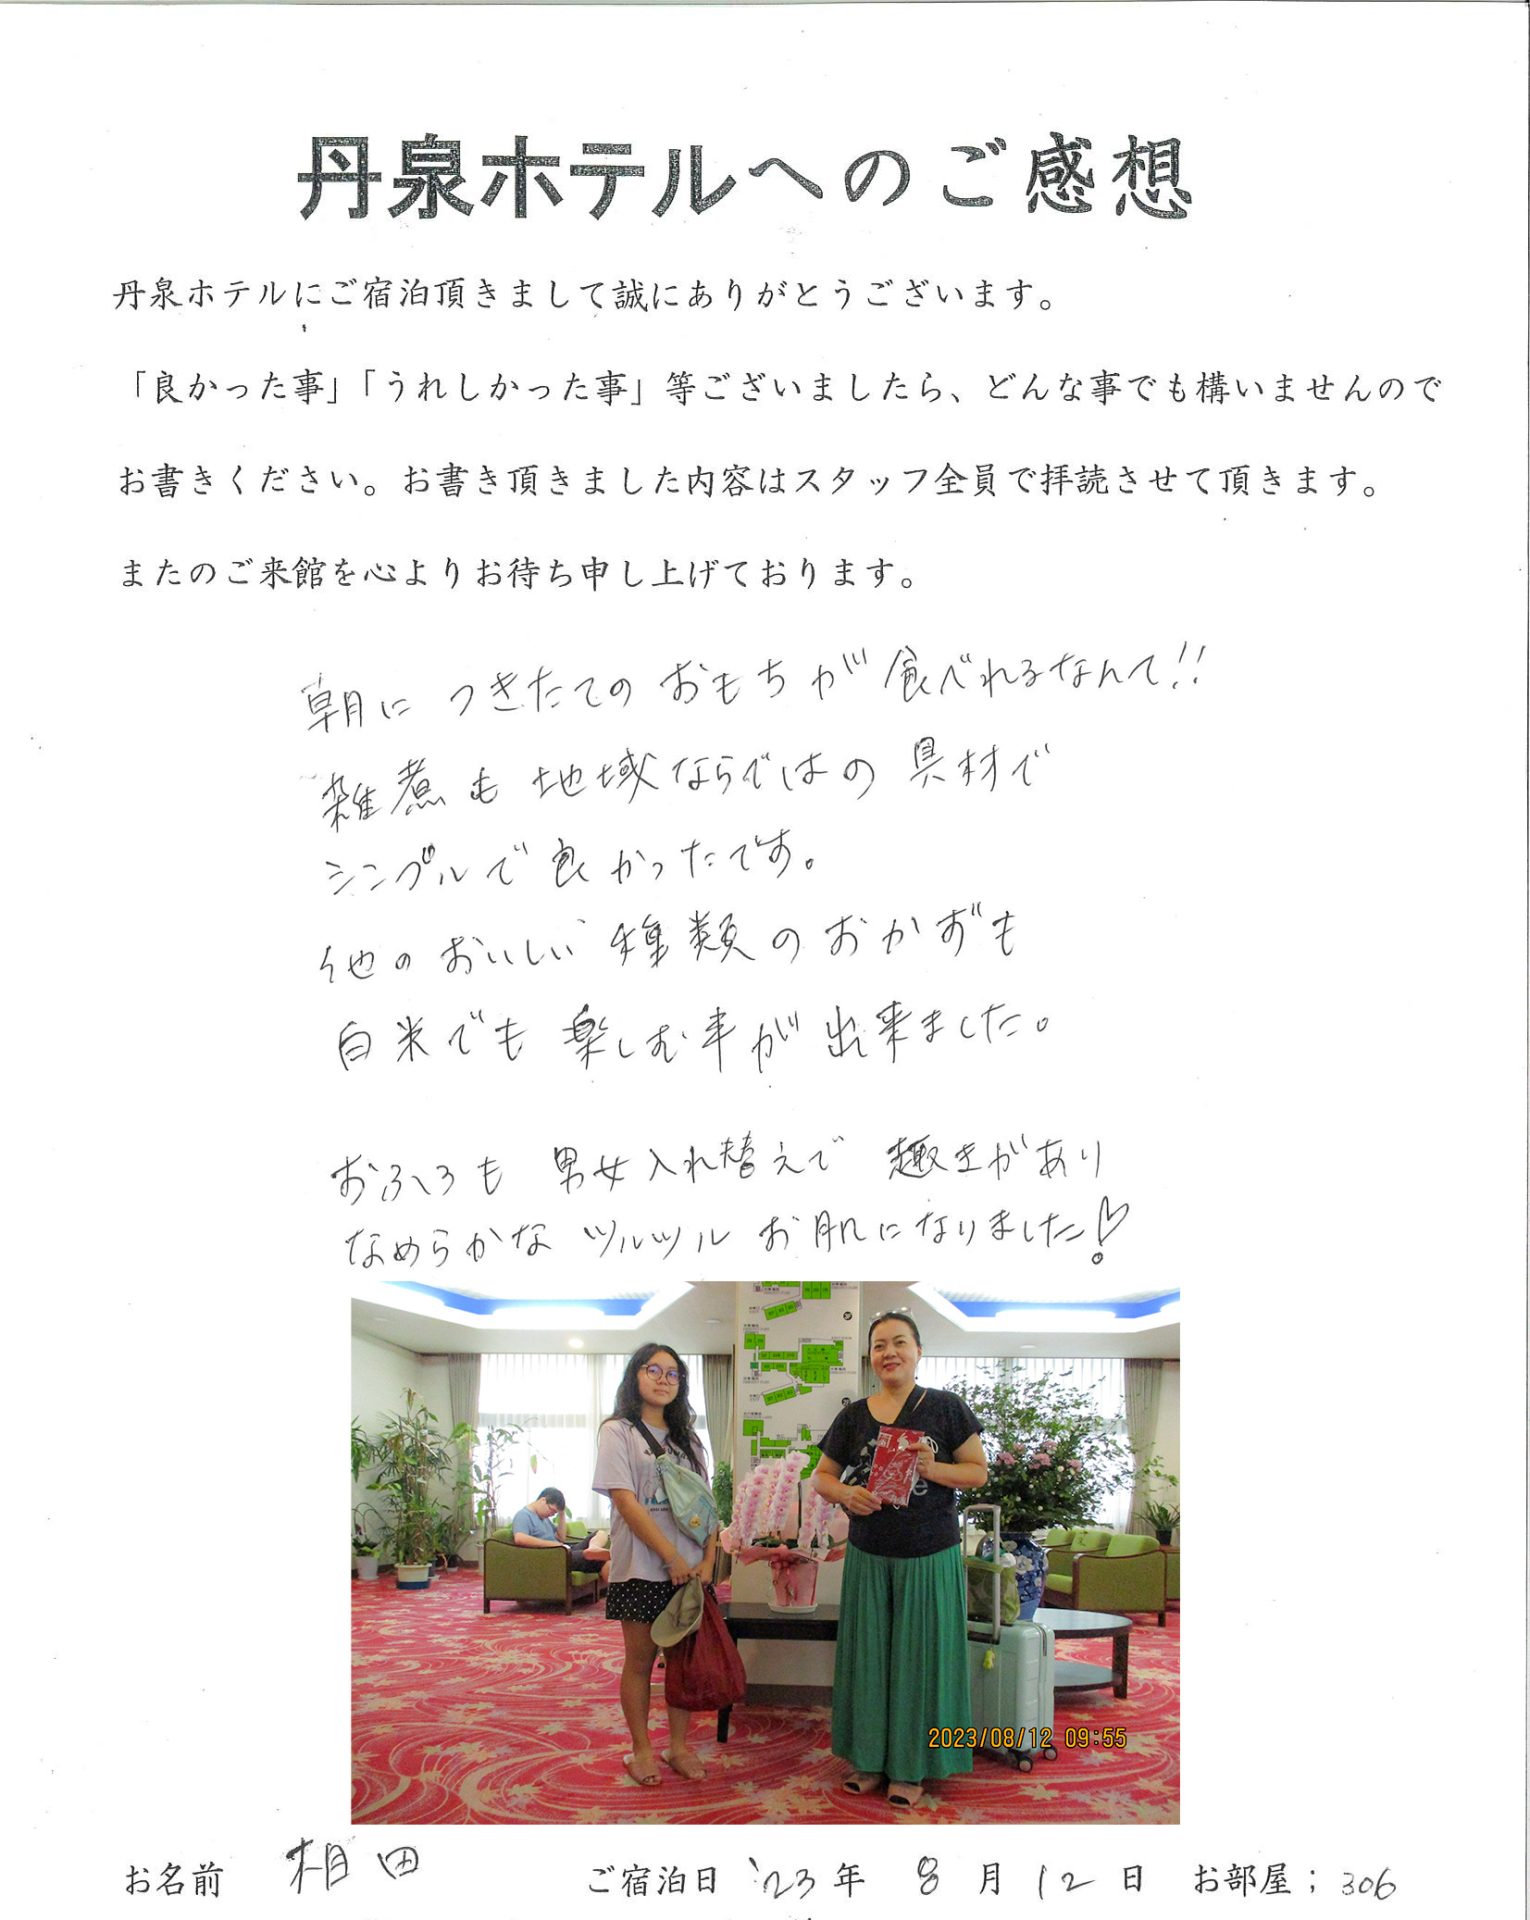 丹泉ホテルへのご感想
丹泉ホテルにご宿泊頂きまして誠にありがとうございます。
「良かった事」「うれしかった事」等ございましたら、どんな事でも構いませんので
お書きください。お書き頂きました内容はスタッフ全員で拝読させて頂きます。
またのご来館を心よりお待ち申し上げております。
朝につきたてのおもちが食べれるなんて!!
雑煮も地域ならではの具材で
シンプルで良かったです。
他のおいしい種類のおかずも
白米でも楽しむ事が出来ました。
おふろも男女入れ替えで趣きがあり
なめらかなツルツルお肌になりました!
2023/08/12 09:55
お名前 相田 ご宿泊日 '23年 8月12日 お部屋；306